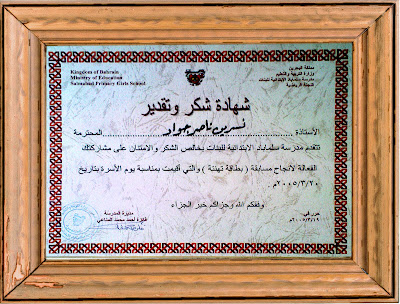 Kingdom of Bahrain
Ministry of Education
Salmabad Primary Girls School
مملكة البحرين
وزارة التربية والتعليم
مدرسة سلماباد الابتدائية للبنات
شهادة شكر وتقدير
الأستاذة نسرين ناصر جواد المحترمة
تتقدم مدرسة سلماباد الابتدائية للبنات بخالص الشكر والامتنان على مشاركتك
الفعالة لأنجاح مسابقة ( بطاقة تهنئة ) والتي أقيمت بمناسبة يوم الأسرة بتاريخ
٢٠٠٥/٣/٢٠م
وفقكم الله وجزاكم خير الجزاء
مديرة المدرسة
فائزة أحمد محمد المناعي
حرر في